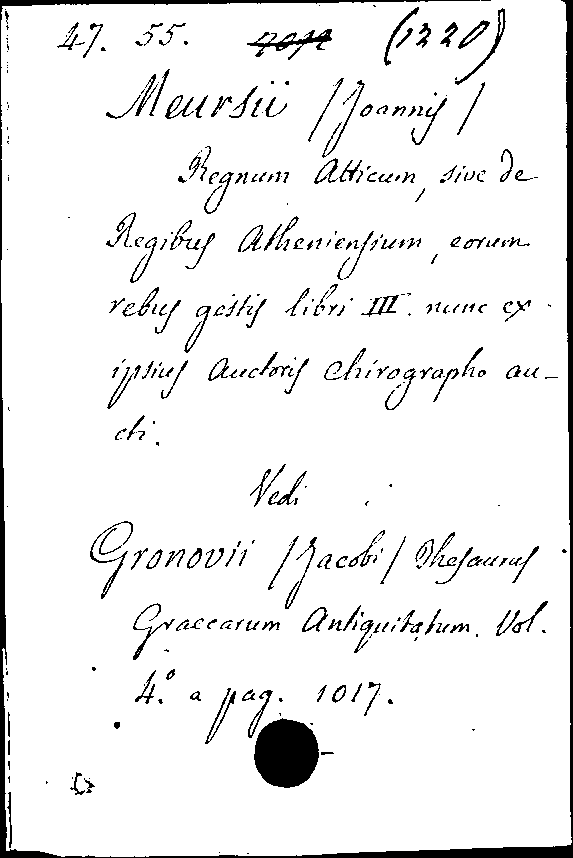 47. 55. (1220)
Meursii /Joannis/
Regnum Atticum, sive de
Regibus Atheniensium, eorum
rebus gestis libri III. nunc ex
ipsius Auctoris Chirographo au-
cti.
Vedi
Gronovii /Jacobi/ Thesaurus
Graecarum Antiquitatum. Vol.
4.º a pag. 1017.